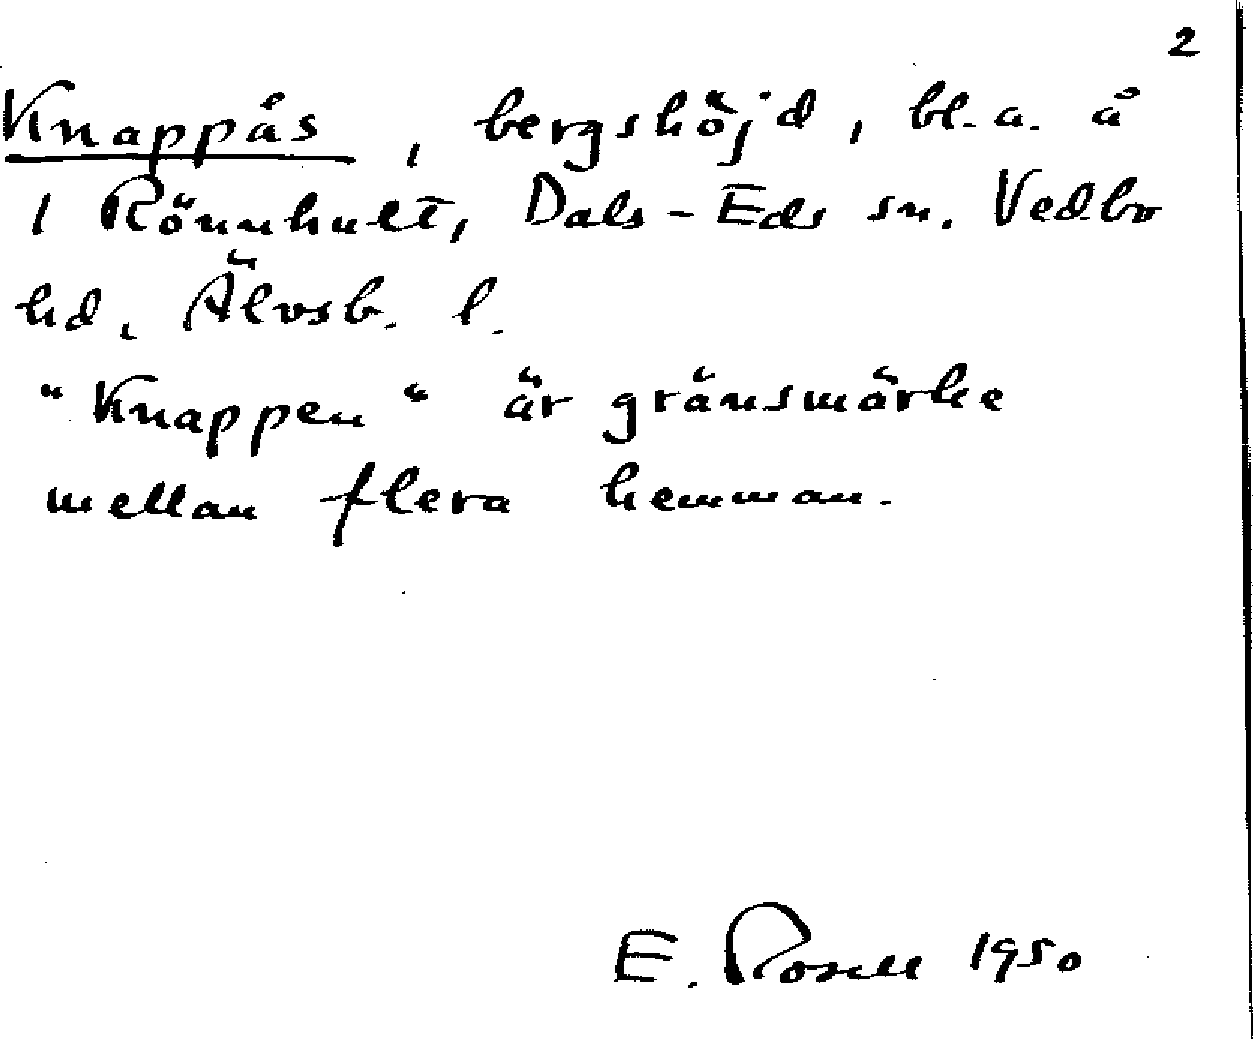 2
Knappås, bergshöjd, bl.a. å
1 Rönnhult, Dals-Eds sn. Vedbo
hd, Älvsb. l.
"Knappen" är gränsmärke
mellan flera hemman.
E. Rosell 1950